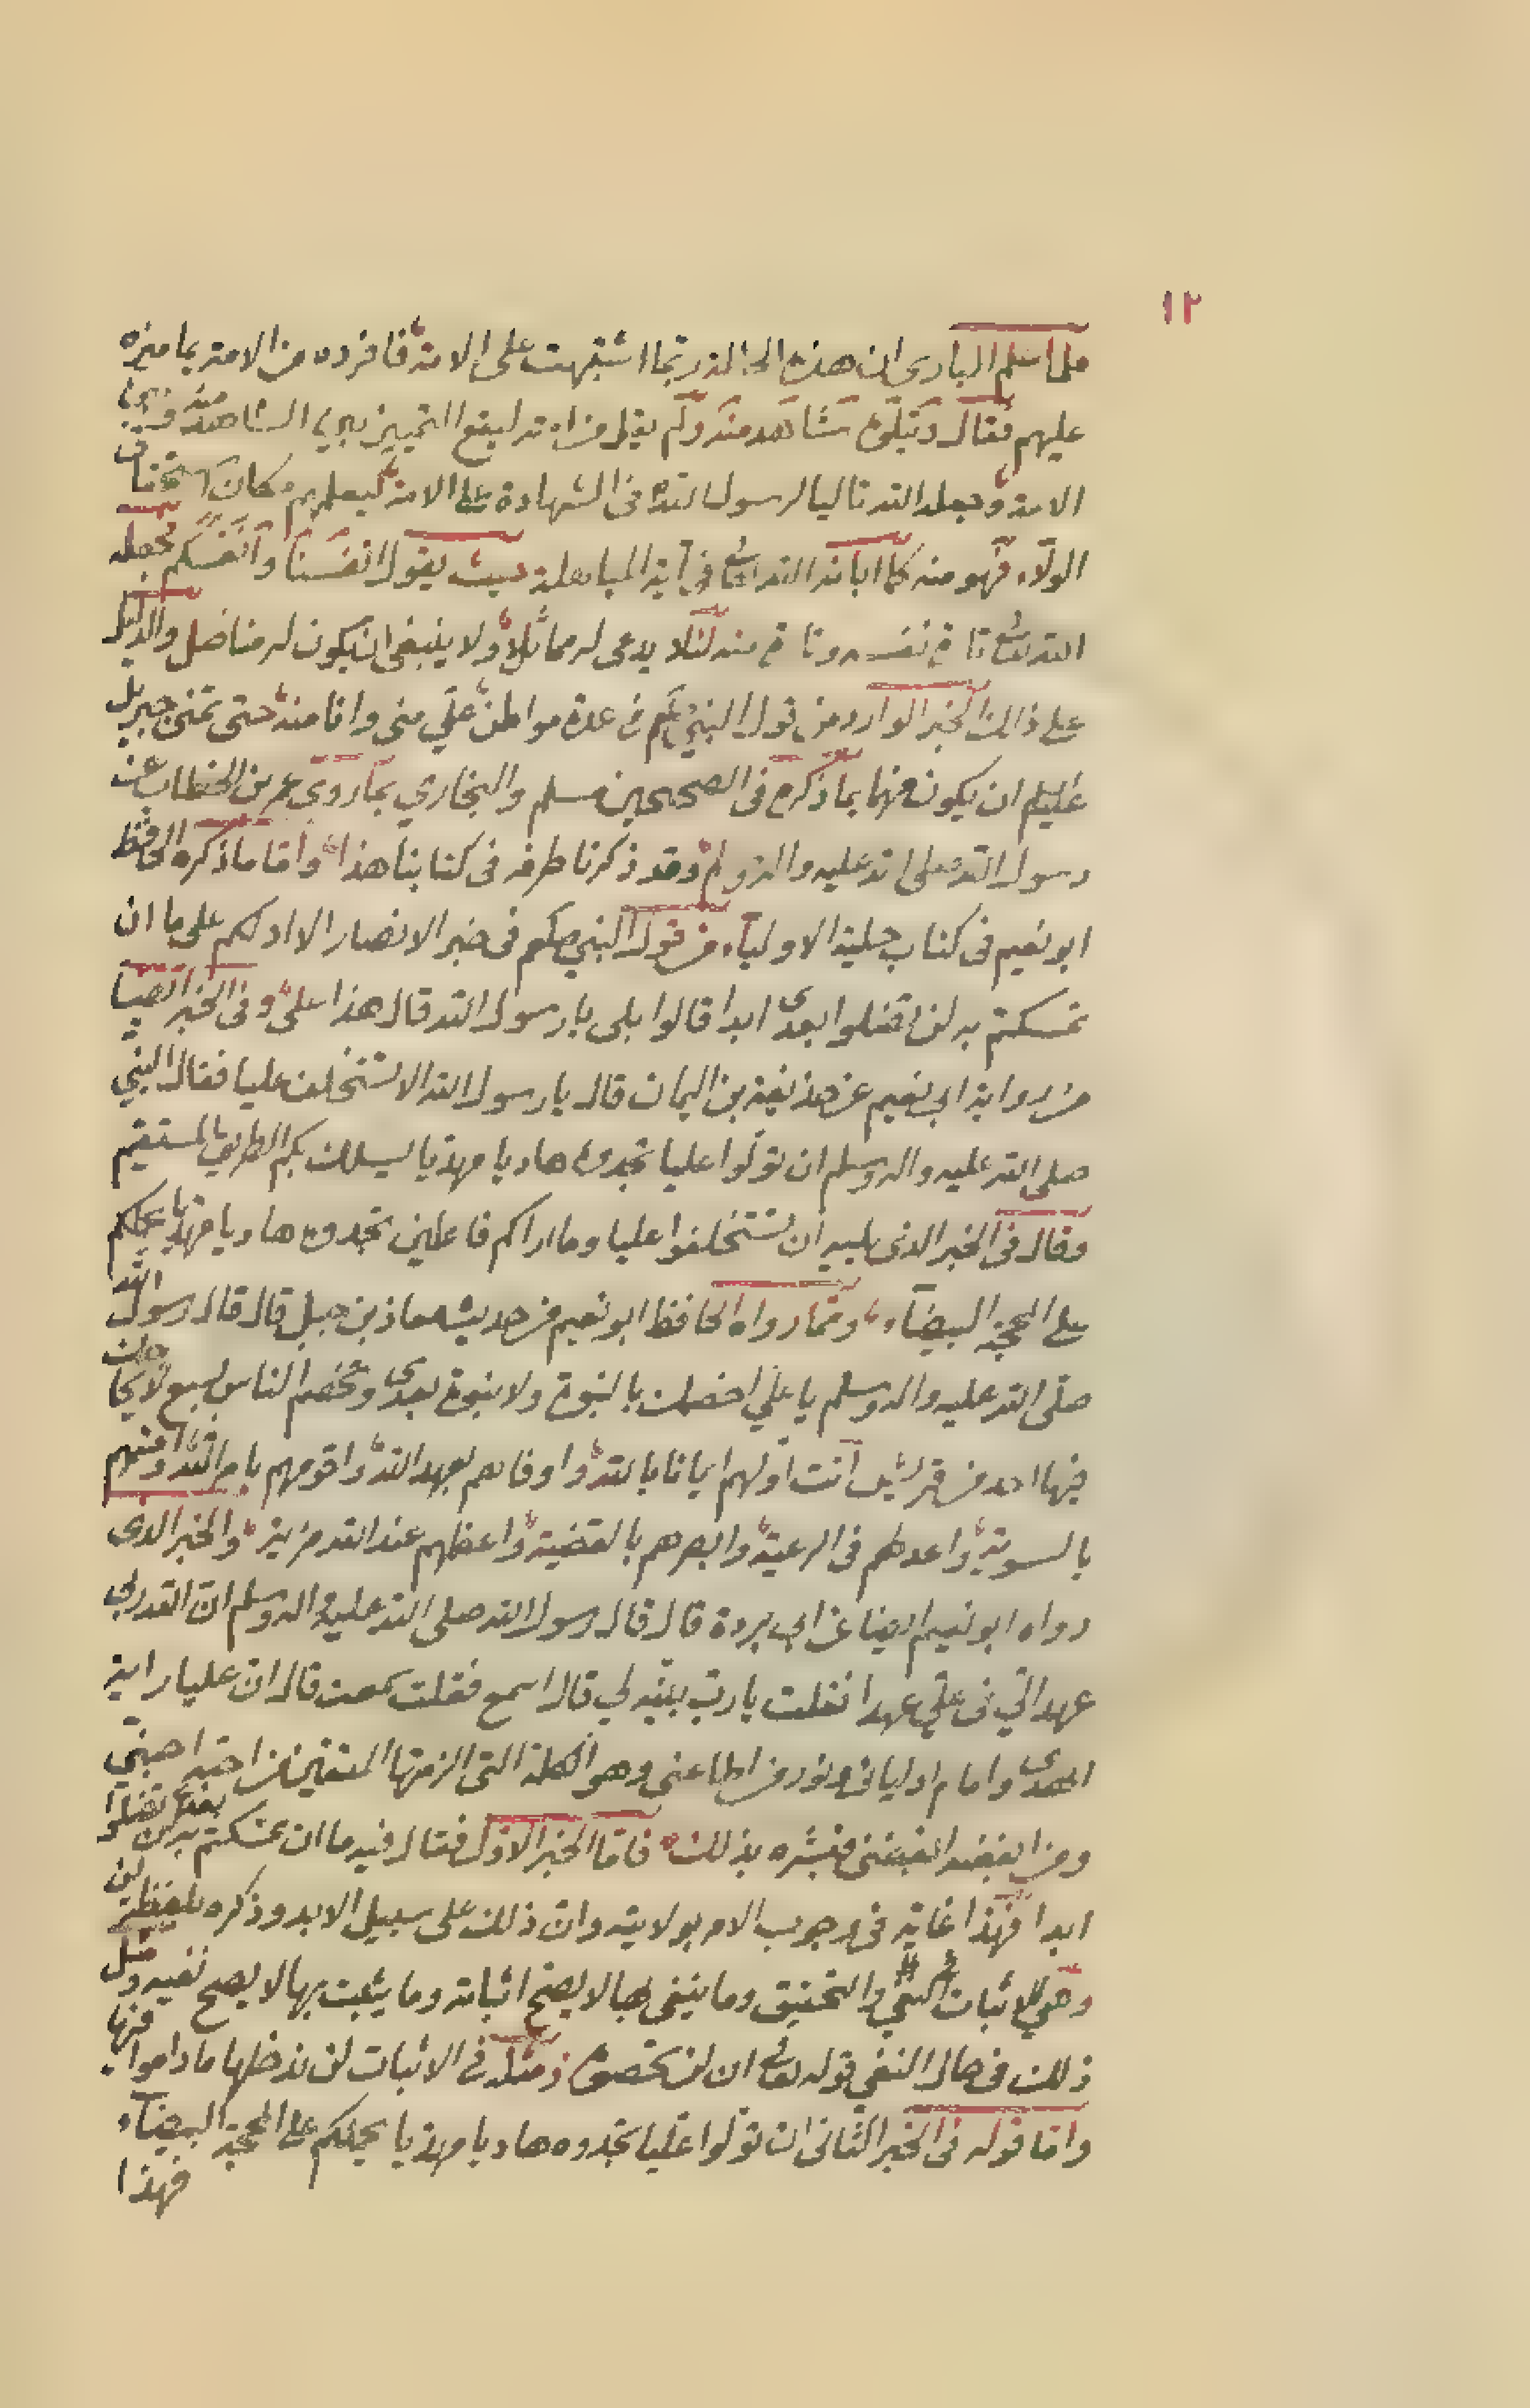 ١٢
فلما علم الباري ان هذه الحالة ربما اشتبهت على الامة فافرده من الامة بما ميزه
عليهم فقال ويتلوه شاهد منه ولم يقل من امته ليقع التمييز بين الشاهد منه وبين
الامة وجعله الله تاليا لرسول الله في الشهادة على الامة ليعلم مكان استحقاق
الولاء فهو منه كما ابانه الله تعالى في آية المباهلة حيث يقول انفسنا وانفسكم فجعله
الله تعالى تارة نفسه وتارة منه لئلا يدعى له مماثل ولا ينبغي ان يكون له مفاضل والدليل
على ذلك الخبر الوارد من قول النبي صلعم في عدة مواطن علي مني وانا منه حتى تمنى جبريل
عليلم ان يكون منهما بما ذكره في الصحيحين مسلم والبخاري بما روي عمر بن الخطاب عن
رسول الله صلى الله عليه واله ولم وقد ذكرنا طرفه في كتابنا هذا واما ما ذكره الحافظ
ابو نعيم في كتاب حلية الاولياء من قول النبي صلعم في خبر الانصار الا ادلكم على ما ان
تمسكتم به لن تضلوا بعدى ابدا قالوا بلى يا رسول الله قال هذا علي وفي الخبر ايضا
من رواية ابي نعيم عن حذيفة بن اليمان قال يا رسول الله الا تستخلف عليا فقال النبي
صلى الله عليه واله وسلم ان تولوا عليا تجدوه هاديا مهديا يسلك بكم الطريق المستقيم
وقال في الخبر الذي يليه ان تستخلفوا عليا وما اراكم فاعلين تجدوه هاديا مهديا يحملكم
على المحجة البيضاء ومما رواه الحافظ ابو نعيم من حديث معاذ بن جبل قال قال رسول الله
صلى الله عليه واله وسلم يا علي اخصمك بالنبوة ولا نبوة بعدى وتخصم الناس بسبع لا يحاجك
فيها احد من قريش انت اولهم ايمانا بالله واوفاهم بعهد الله واقومهم بامر الله واقسمهم
بالسوية واعدلهم في الرعية وابصرهم بالقضية واعظمهم عند الله مزية والخبر الذى
رواه ابو نعيم ايضا عن ابي بردة قال قال رسول الله صلى الله عليه واله وسلم ان الله ربي
عهد الي في علي عهدا فقلت يا رب بينه لي قال اسمع فقلت سمعت قال ان عليا راية
الهدى وامام اوليائى ونور من اطاعنى وهو الكلمة التى الزمتها المتقين من احبه احبني
ومن ابغضه ابغضنى فبشره بذلك فاما الخبر الاول فقال فيه ما ان تمسكتم به لن تضلوا بعدى
ابدا فهذا غاية في وجوب الامر بولايته وان ذلك على سبيل الابد وذكره بلفظة لن
وهي لاثبات النفي والتحقيق وما ينفى بها لا يصح اثباته وما يثبت بها لا يصح نفيه ومثل
ذلك في حال النفي قوله تعالى ان لن تحصوه ومثله في الاثبات لن ندخلها ما داموا فيها
واما قوله في الخبر الثانى ان تولوا عليا تجدوه هاديا مهديا يحملكم على المحجة البيضاء
فهذا